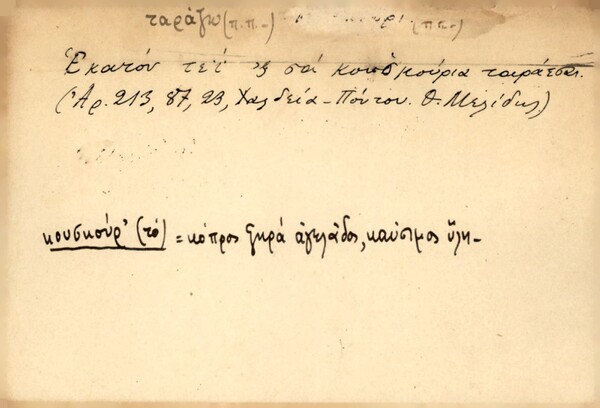 ταράζω (π.π.-) (ππ.-)
Ἑκατὸν τεῒ 'ς σὰ κουσκούρια ταράεσαι.
(Ἀρ. 213, 87, 23, Χαλδεία - Πόντου. Θ. Μελίδης)
κουσκούρ' (τό) = κόπρος ξηρὰ ἀγελάδος, καύσιμος ὕλη-